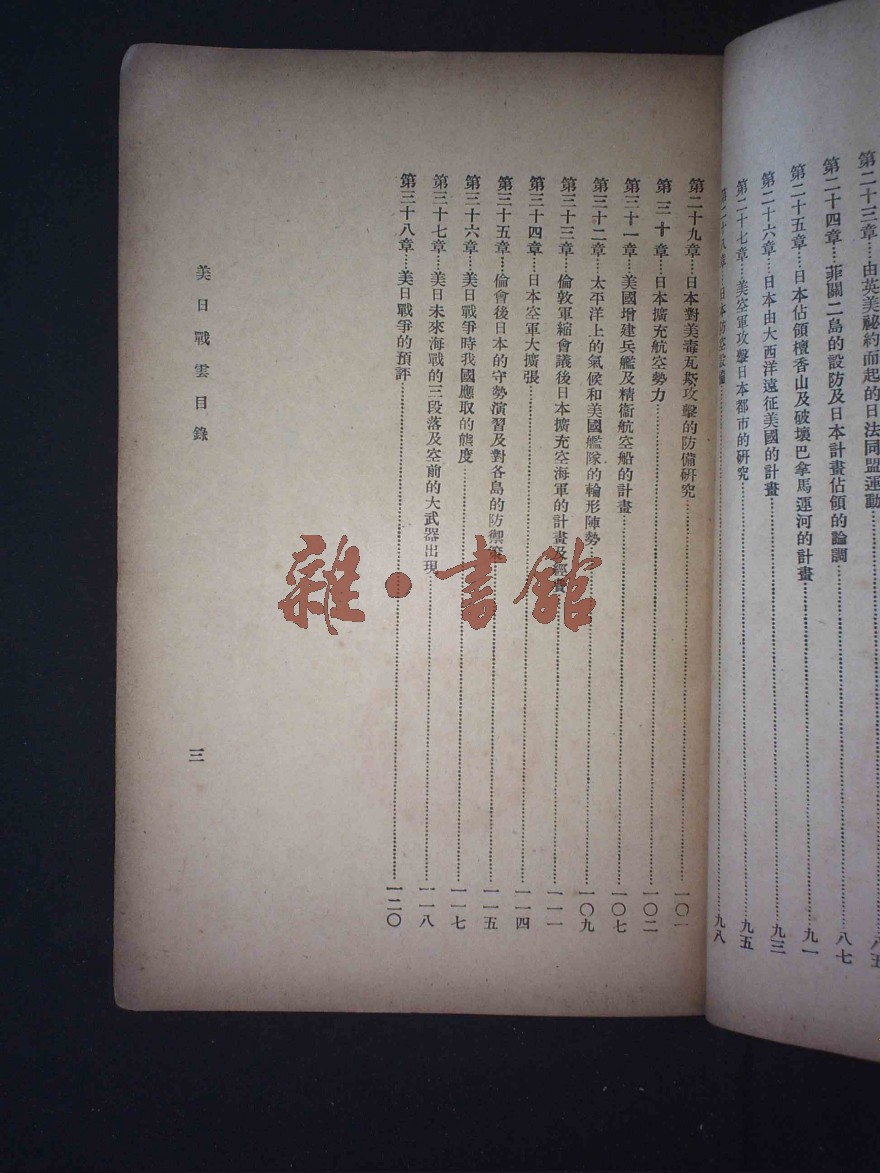 第二十三章…由英美祕約而起的日法同盟運動……八五
第二十四章…菲關二島的設防及日本計畫佔領的論調……八七
第二十五章…日本佔領檀香山及破壞巴拿馬運河的計畫……九一
第二十六章…日本由大西洋遠征美國的計畫……九三
第二十七章…美空軍攻擊日本都市的研究……九五
第二十八章…日本防空設備……九八
第二十九章…日本對美毒瓦斯攻擊的防備研究……一〇一
第三十章…日本擴充航空勢力……一〇二
第三十一章…美國增建兵艦及精衞航空船的計畫……一〇七
第三十二章…太平洋上的氣候和美國艦隊的輪形陣勢……一〇九
第三十三章…倫敦軍縮會議後日本擴充空海軍的計畫及經費……一一一
第三十四章…日本空軍大擴張……一一四
第三十五章…倫會後日本的守勢演習及對各島的防禦策……一一五
第三十六章…美日戰爭時我國應取的態度……一一七
第三十七章…美日未來海戰的三段落及空前的大武器出現……一一八
第三十八章…美日戰爭的預評……一二〇
美日戰雲目錄
三
雜·書館